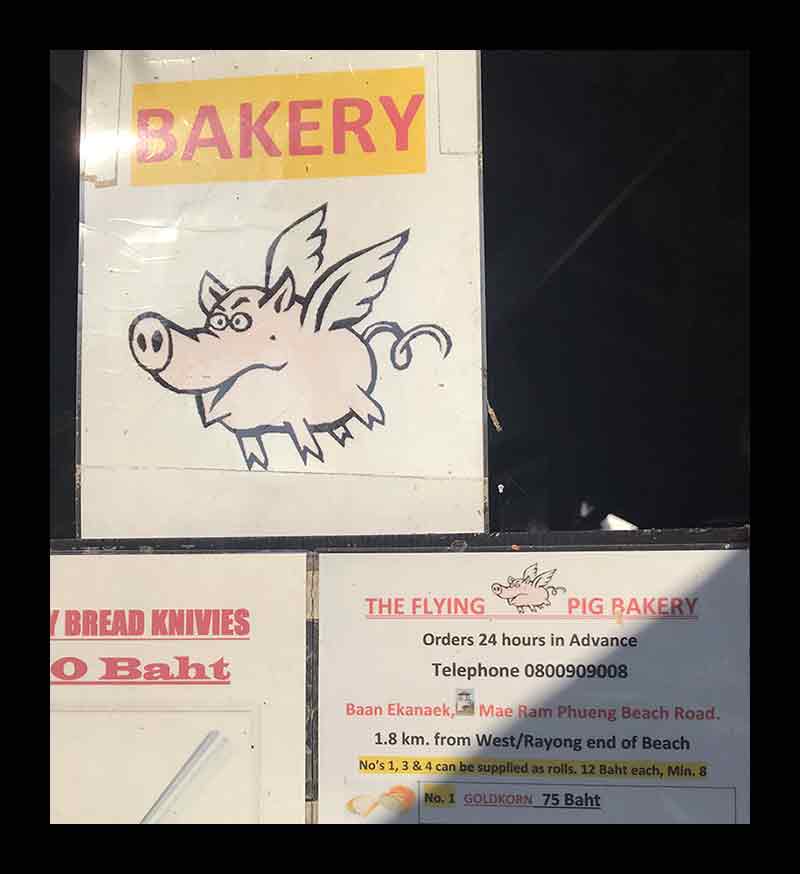 BAKERY
Y BREAD KNIVIES
0 Baht
THE FLYING PIG BAKERY
Orders 24 hours in Advance
Telephone 0800909008
Baan Ekanaek, Mae Ram Phueng Beach Road.
1.8 km. from West/Rayong end of Beach
No's 1, 3 & 4 can be supplied as rolls. 12 Baht each, Min. 8
No. 1 GOLDKORN 75 Baht